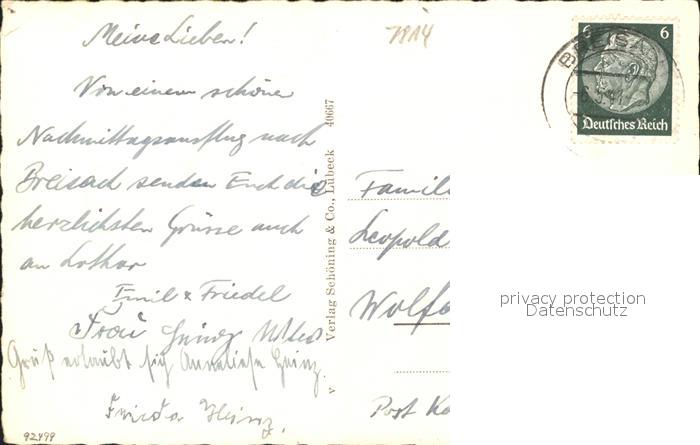 Meine Lieben!
Von einem schönen
Nachmittagsausflug nach
Breisach senden Euch die
herzlichsten Grüsse auch
an Lothar
Emil & Friedel
Frau Heinz
Gruß erlaubt sich Anneliese Heinz.
Frieda Heinz.
92499
7814
Verlag Schöning & Co., Lübeck 40667
v
6 6
Deutsches Reich
BREISA
Famil
Leopold
Wolf
Post
privacy protection
Datenschutz